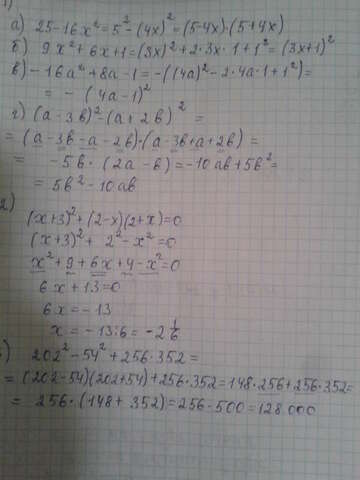 1)
а) 25-16x²=5²-(4x)²=(5-4x)·(5+4x)
б) 9x²+6x+1=(3x)²+2·3x·1+1²=(3x+1)²
в) -16a²+8a-1=-((4a)²-2·4a·1+1²)=
= -(4a-1)²
г) (a-3b)²-(a+2b)² =
=(a-3b-a-2b)·(a-3b+a+2b)=
= -5b·(2a-b)=-10ab+5b²=
= 5b²-10ab
2)
(x+3)²+(2-x)(2+x)=0
(x+3)²+2²-x²=0
x²+9+6x+4-x²=0
6x+13=0
6x=-13
x=-13:6=-2 1/6
3)
202²-54²+256·352=
=(202-54)(202+54)+256·352=148·256+256·352=
= 256·(148+352)=256·500=128.000